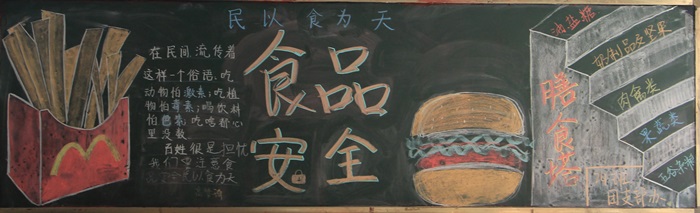 民以食为天
在民间,流传着
这样一个俗语:吃
动物怕激素;吃植
物怕毒素;喝饮料
怕色素,吃啥都心
里没数
百姓很是担忧
食品
安全
膳食塔
油盐糖
奶制品及坚果
肉禽类
果蔬类
五谷杂粮
团支部